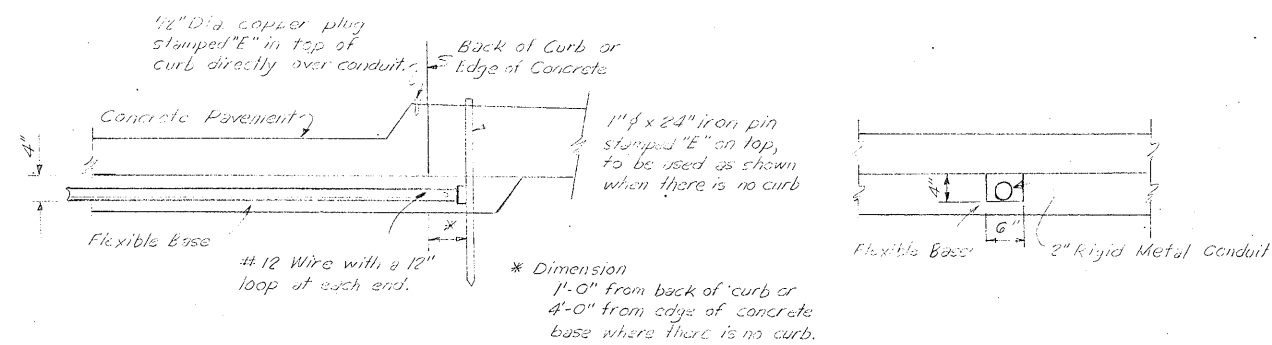 1/2" Dia. copper plug
stamped "E" in top of
curb directly over conduit.
Back of Curb or
Edge of Concrete
Concrete Pavement
4"
1"ϕ x 24" iron pin
stamped "E" on top,
to be used as shown
when there is no curb
Flexible Base
*
#12 Wire with a 12"
loop at each end.
* Dimension
1'-0" from back of curb or
4'-0" from edge of concrete
base where there is no curb.
4"
6"
Flexible Base
2" Rigid Metal Conduit